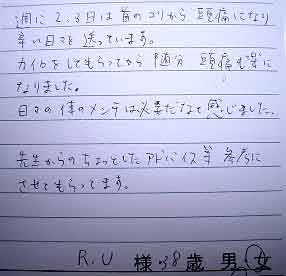 週に2,3日は首のコリから頭痛になり
辛い日々を送っています。
カイロをしてもらってから 随分 頭痛も楽に
なりました。
日々の体のメンテは必要だなと感じました。
先生からのちょっとしたアドバイス等 参考に
させてもらってます。
R.U 様 38歳 男 女